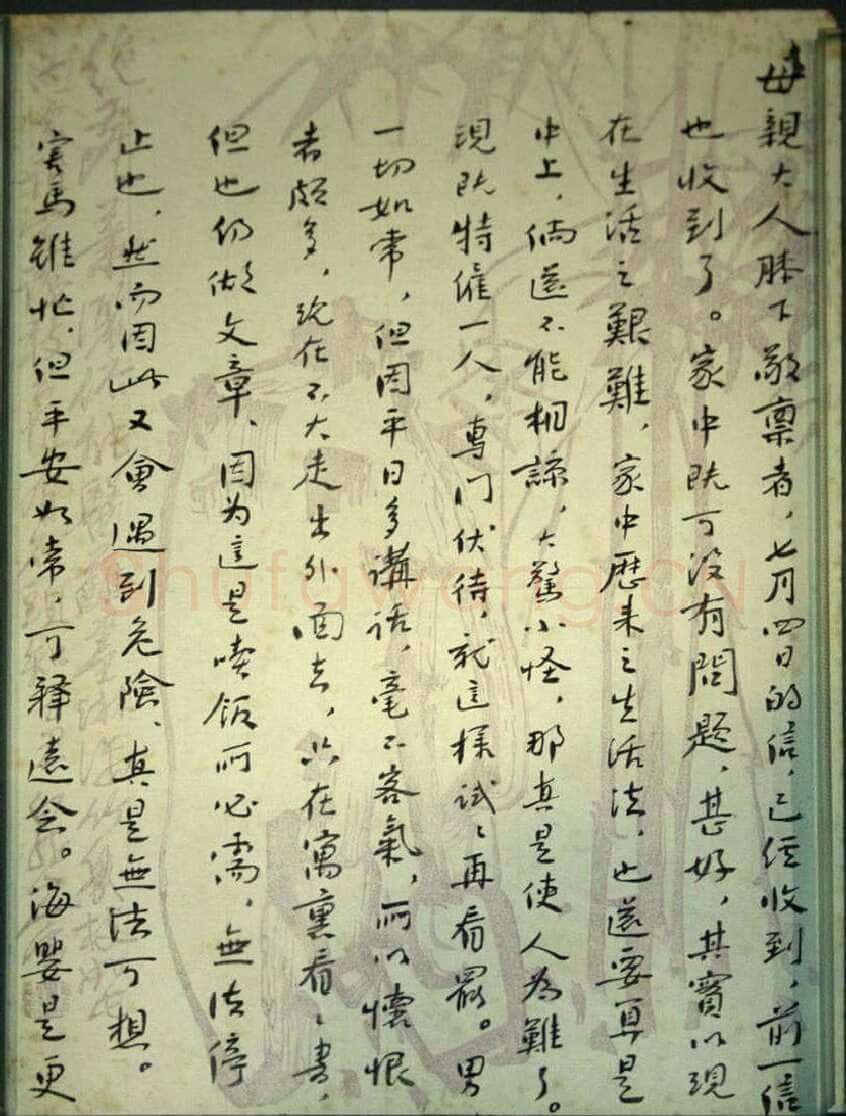 母親大人膝下敬禀者，七月四日的信，已经收到，前一信
也收到了。家中既可没有問題，甚好，其實以現
在生活之艱難，家中歷来之生活法，也還要算是
中上，倘還不能相諒，大驚小怪，那真是使人为難了。
現既特雇一人，專门伏待，就這样試試再看罷。男
一切如常，但因平日多講话，毫不客氣，所以懷恨
者頗多，现在不大走出外面去，只在寓裏看看書，
但也仍做文章，因为這是喫飯所必需，無法停
止也，然而因此又會遇到危險，真是無法可想。
害馬雖忙，但平安如常，可释遠念。海嬰是更
Shufawang.cn